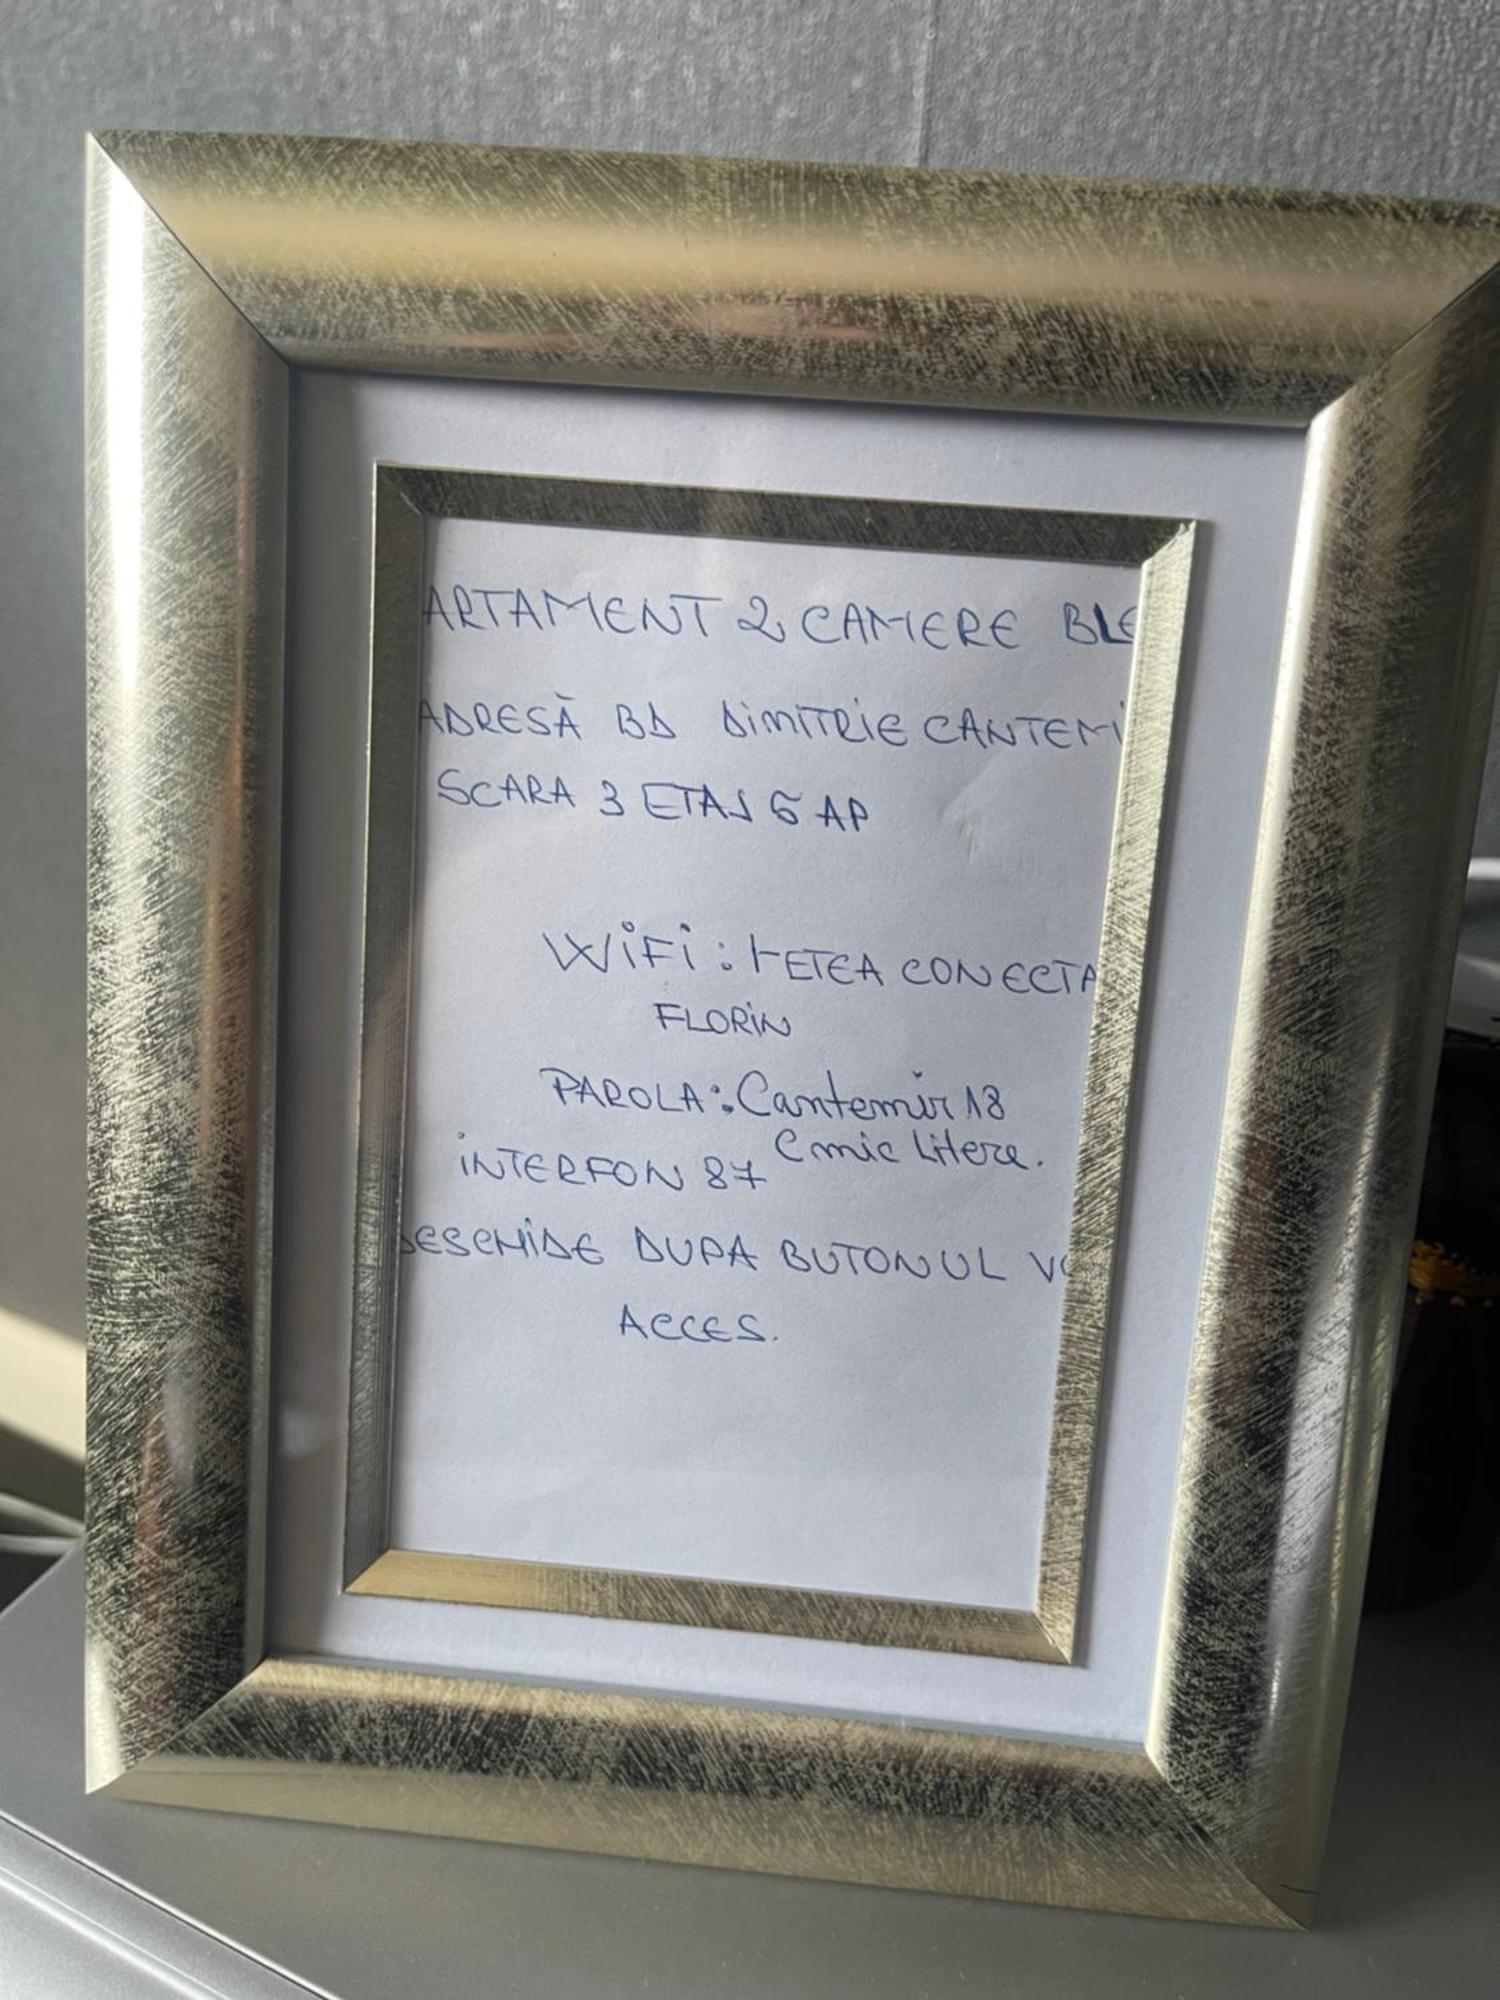 ARTAMENT 2 CAMERE BLE
ADRESĂ BD DIMITRIE CANTEMI
SCARA 3 ETAJ 5 AP
WiFi: RETEA CONECTA
FLORIN
PAROLA: Cantemir18
C mic litere.
INTERFON 87
DESCHIDE DUPA BUTONUL
ACCES.